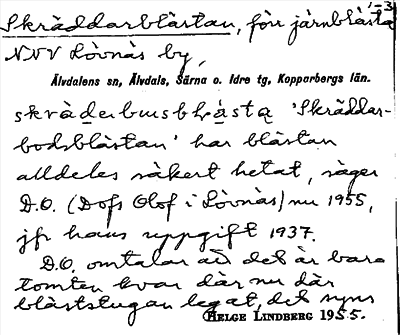 1-3
Skräddarblästan, förr järnblästa
NNV Lövnäs by,
Älvdalens sn, Älvdals, Särna o. Idre tg, Kopparbergs län.
skräderbusblästa 'Skräddar-
bodblästan' har blästan
alldeles säkert hetat, säger
D.O. (Dofs Olof i Lövnäs) nu 1955,
jfr hans uppgift 1937.
D.O. omtalar att det är bara
tomten kvar där nu där
bläststugan legat, det syns
HELGE LINDBERG 1955.